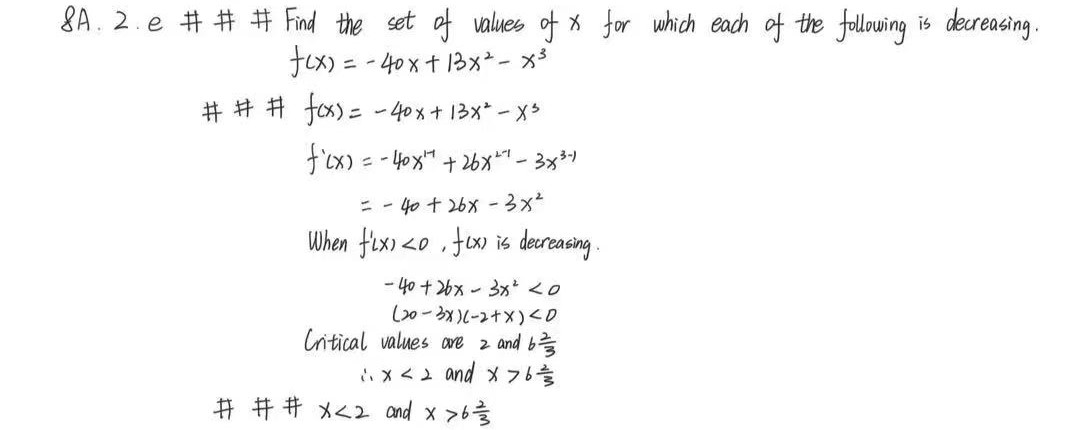 8A. 2. e # # # Find the set of values of x for which each of the following is decreasing.
f(x) = -40x + 13x² - x³
# # # f(x) = -40x + 13x² - x³
f'(x) = -40x¹⁻¹ + 26x²⁻¹ - 3x³⁻¹
= -40 + 26x - 3x²
When f'(x) < 0, f(x) is decreasing.
-40 + 26x - 3x² < 0
(20 - 3x)(-2 + x) < 0
Critical values are 2 and 6 2/3
∴ x < 2 and x > 6 2/3
# # # x < 2 and x > 6 2/3